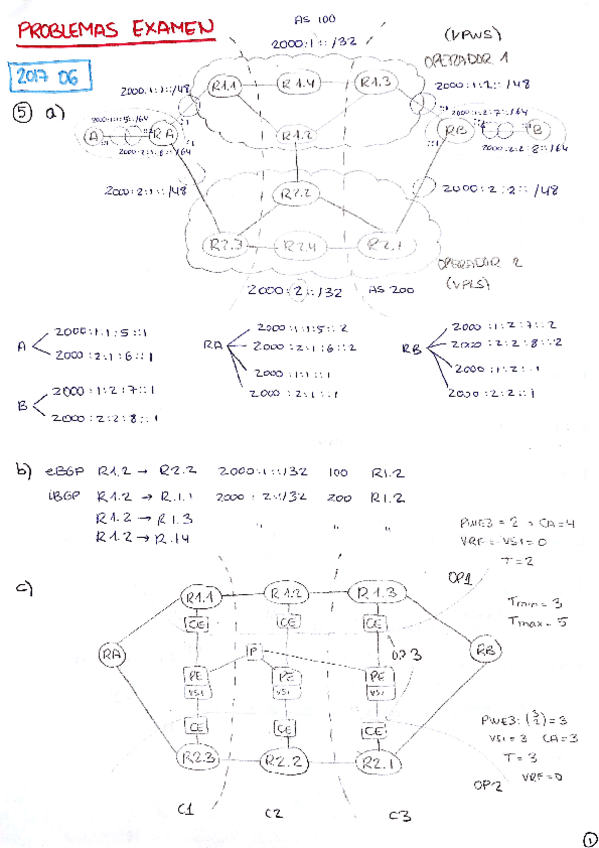 PROBLEMAS EXAMEN
AS 100
2000:1::/32
(VPWS)
OPERADOR 1
2017 06
5 a)
2000:1:1::/48
R1.1
R1.4
R1.3
2000:1:2::/48
2000:1:1:5::/64
A
RA
2000:2:1:6::/64
R1.2
2000:1:2:7::/64
RB
B
2000:2:2:8::/64
2000:2:1::/48
R2.2
2000:2:2::/48
R2.3
R2.4
R2.1
OPERADOR 2
(VPLS)
2000:2::/32
AS 200
A
2000:1:1:5::1
2000:2:1:6::1
B
2000:1:2:7::1
2000:2:2:8::1
RA
2000:1:1:5::2
2000:2:1:6::2
2000:1:1::1
2000:2:1::1
RB
2000:1:2:7::2
2000:2:2:8::2
2000:1:2::1
2000:2:2::1
b) eBGP R1.2 → R2.2 2000:1::/32 100 R1.2
iBGP R1.2 → R1.1 2000:2::/32 200 R1.2
R1.2 → R1.3 " " "
R1.2 → R1.4
PWE3 = 2 → CA=4
VRF = VSI = 0
T = 2
c)
OP1
R1.1
R1.2
R1.3
Tmin = 3
Tmax = 5
CE
CE
CE
RA
P
OP3
RB
PE
VSI
PE
VSI
PE
VSI
CE
CE
CE
PWE3: (3 2) = 3
VSI = 3 CA = 3
T = 3
VRF = 0
R2.3
R2.2
R2.1
OP2
C1
C2
C3
1